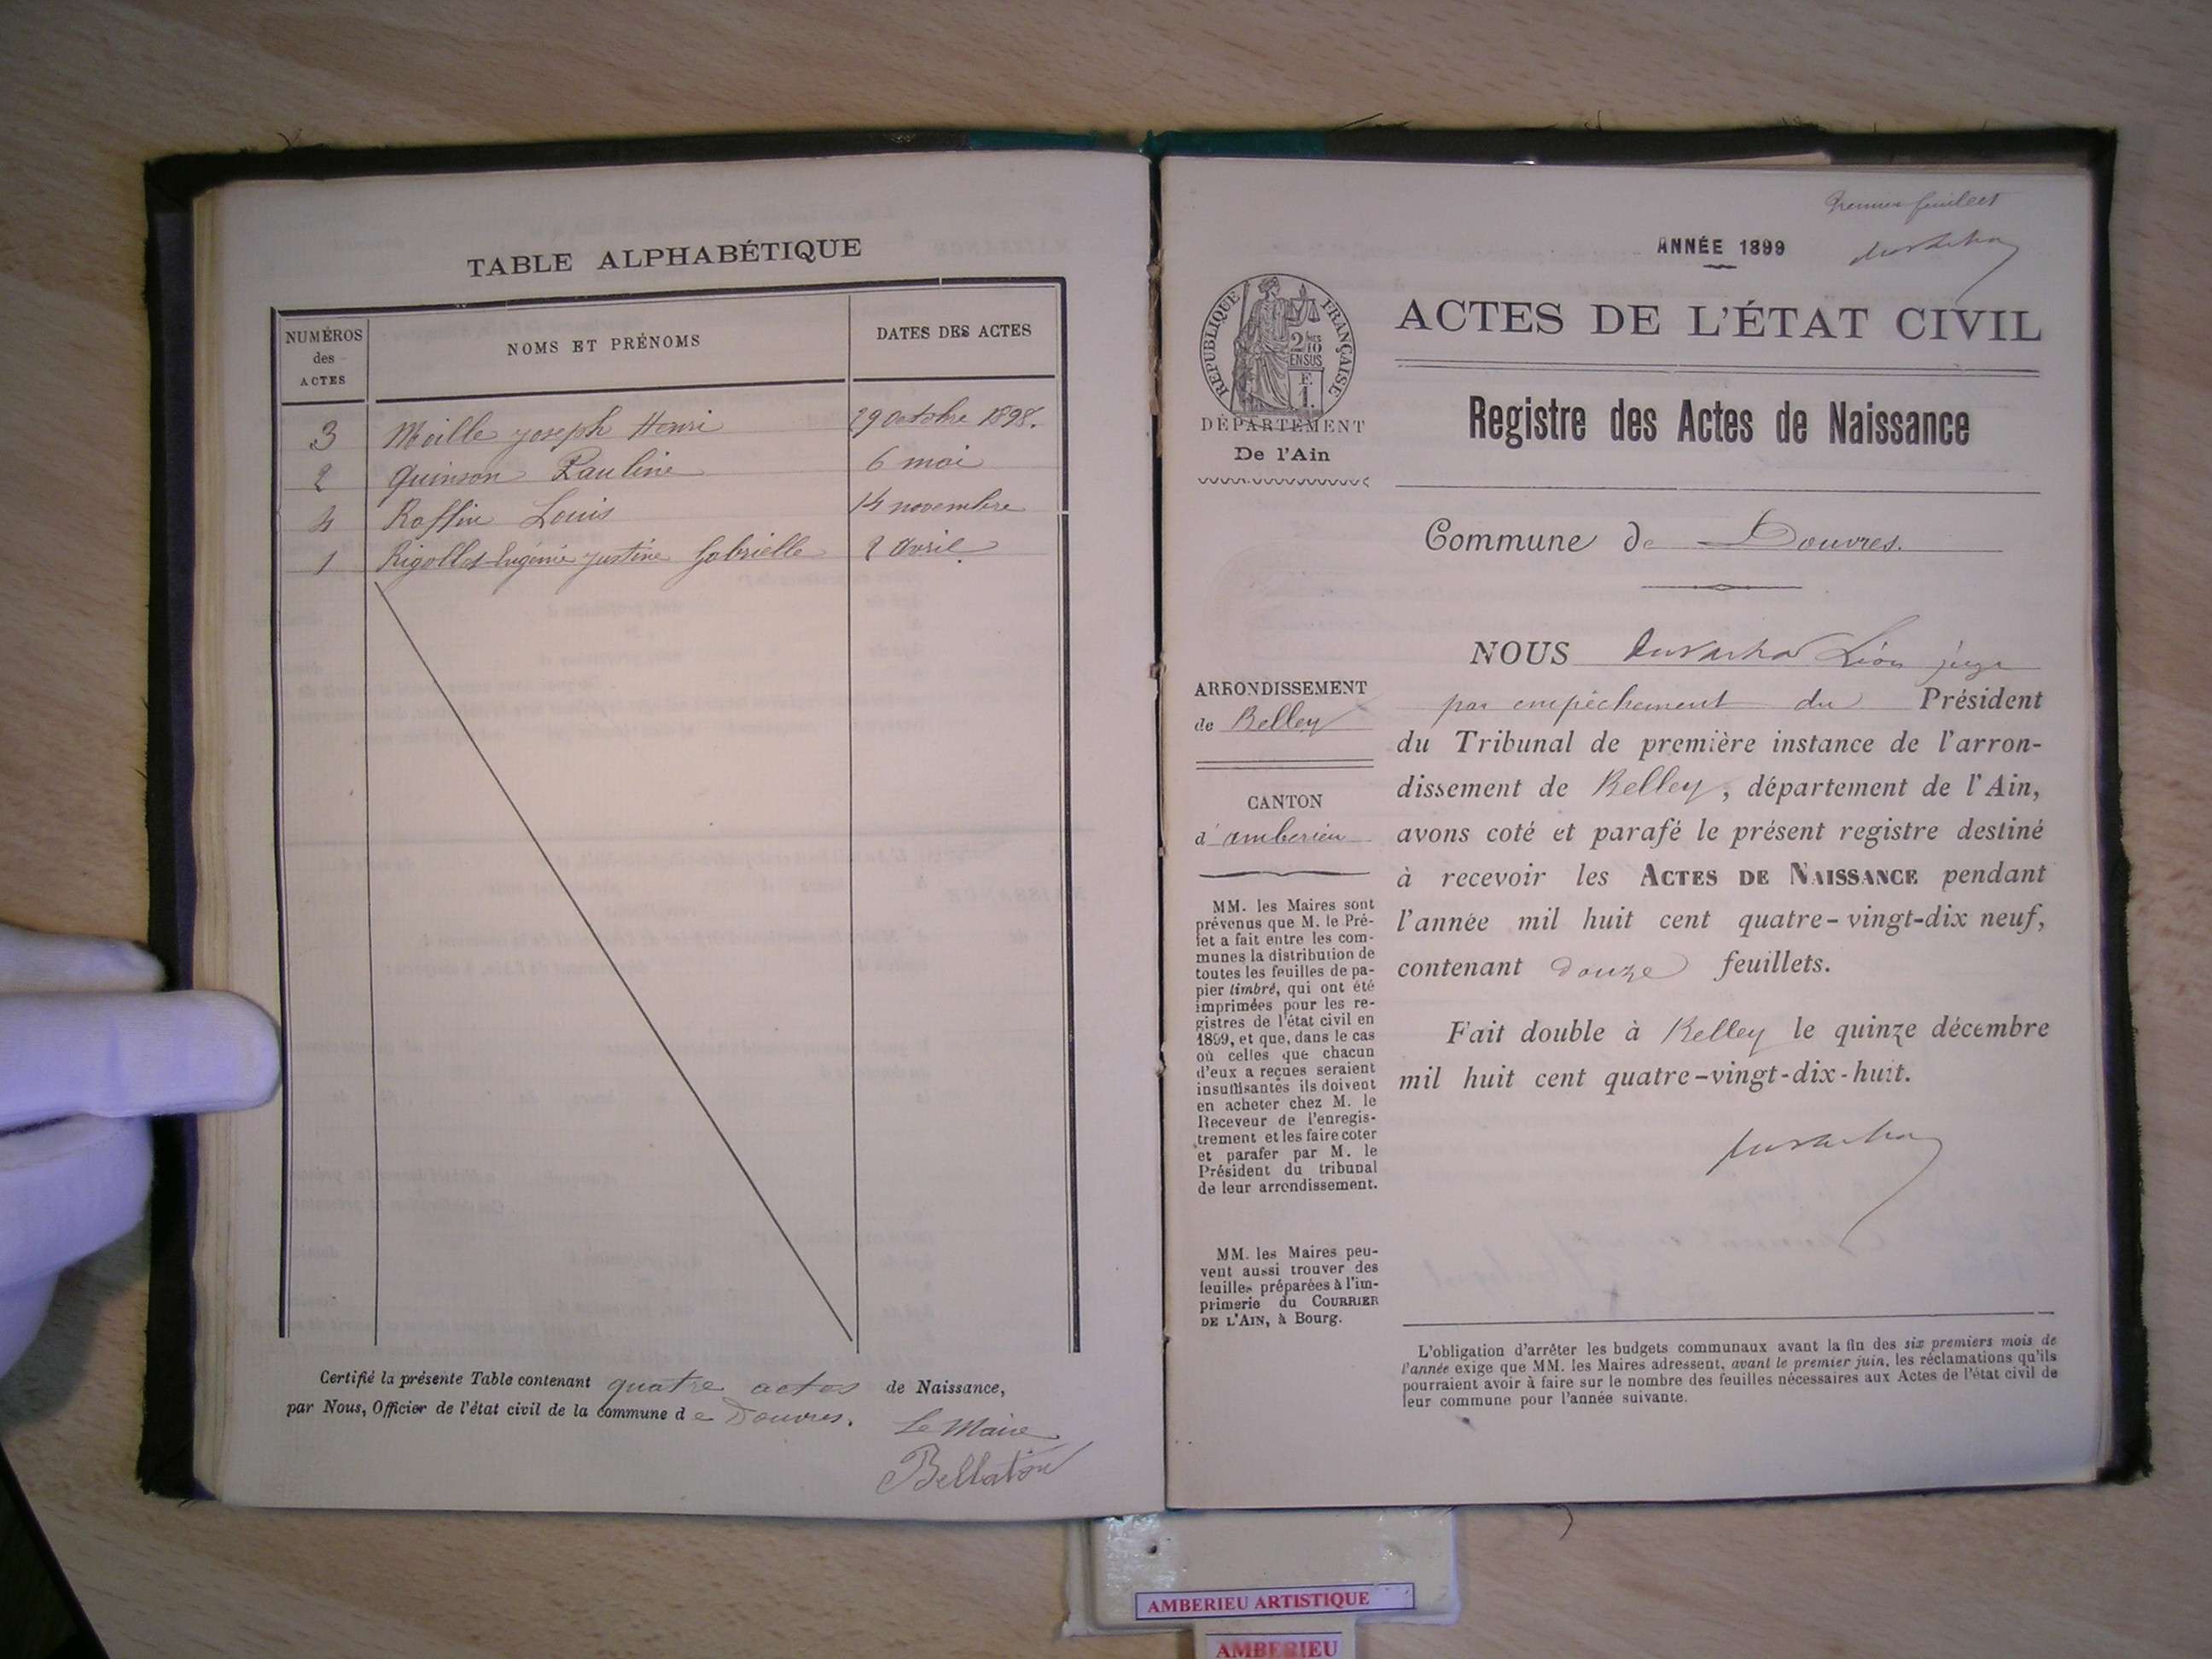 TABLE ALPHABÉTIQUE
NUMÉROS des ACTES
NOMS ET PRÉNOMS
DATES DES ACTES
3 Meille Joseph Henri 29 octobre 1898.
2 Quinson Pauline 6 mai
4 Roffin Louis 14 novembre
1 Rigollet Eugénie Justine Gabrielle 2 avril
Certifié la présente Table contenant quatre actes de Naissance,
par Nous, Officier de l'état civil de la commune de Douvres.
Le Maire
Bellaton
Premier feuillet
ANNÉE 1899
RÉPUBLIQUE FRANÇAISE
2/10 EN SUS
F. 1.
DÉPARTEMENT
De l'Ain
ACTES DE L'ÉTAT CIVIL
Registre des Actes de Naissance
Commune de Douvres.
ARRONDISSEMENT
de Belley
CANTON
d'amberieu
MM. les Maires sont
prévenus que M. le Pré-
fet a fait entre les com-
munes la distribution de
toutes les feuilles de pa-
pier timbré, qui ont été
imprimées pour les re-
gistres de l'état civil en
1899, et que, dans le cas
où celles que chacun
d'eux a reçues seraient
insuffisantes ils doivent
en acheter chez M. le
Receveur de l'enregis-
trement et les faire coter
et parafer par M. le
Président du tribunal
de leur arrondissement.
MM. les Maires peu-
vent aussi trouver des
feuilles préparées à l'im-
primerie du COURRIER
DE L'AIN, à Bourg.
NOUS Léon juge
par empêchement du Président
du Tribunal de première instance de l'arron-
dissement de Belley, département de l'Ain,
avons coté et parafé le présent registre destiné
à recevoir les ACTES DE NAISSANCE pendant
l'année mil huit cent quatre-vingt-dix neuf,
contenant douze feuillets.
Fait double à Belley le quinze décembre
mil huit cent quatre-vingt-dix-huit.
L'obligation d'arrêter les budgets communaux avant la fin des six premiers mois de
l'année exige que MM. les Maires adressent, avant le premier juin, les réclamations qu'ils
pourraient avoir à faire sur le nombre des feuilles nécessaires aux Actes de l'état civil de
leur commune pour l'année suivante.
AMBERIEU ARTISTIQUE
AMBERIEU